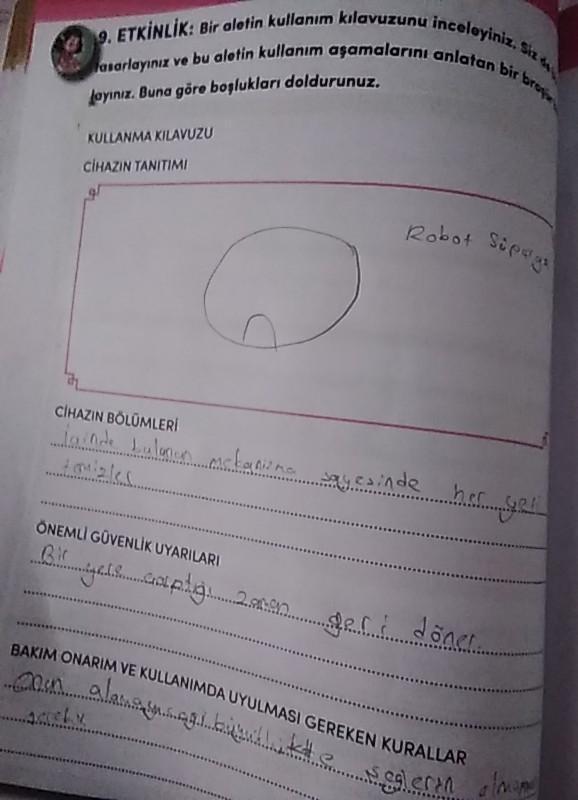 9. ETKİNLİK: Bir aletin kullanım kılavuzunu inceleyiniz. Siz de
tasarlayınız ve bu aletin kullanım aşamalarını anlatan bir broşür
layınız. Buna göre boşlukları doldurunuz.
KULLANMA KILAVUZU
CİHAZIN TANITIMI
Robot Süpürge
CİHAZIN BÖLÜMLERİ
İçinde bulunan mekanizma sayesinde her yeri
temizler
ÖNEMLİ GÜVENLİK UYARILARI
Bir yere çarptığı zaman geri döner.
BAKIM ONARIM VE KULLANIMDA UYULMASI GEREKEN KURALLAR
Onun alamayacağı büyüklükte şeylerin olmaması
gerekir